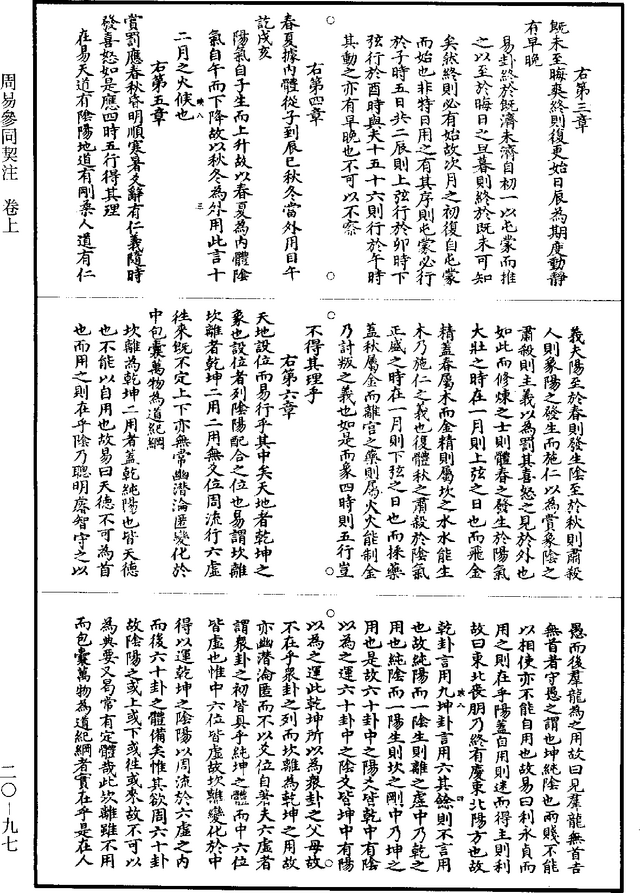 周易參同契注　卷上
二〇—九七
右第三章
既未至晦爽終則復更始日辰為期度動靜
有早晚
易卦終於既濟未濟自初一以屯蒙而推
之以至於晦日之旦暮則終於既未可知
矣然終則必有始故次月之初復自屯蒙
而始也非特日用之有其序則屯蒙必行
於子時五日共二辰則上弦行於卯時下
弦行於酉時與夫十五十六則行於午時
其動之亦有早晚也不可以不察
右第四章
春夏據內體從子到辰巳秋冬當外用自午
訖戌亥
陽氣自子生而上升故以春夏為內體陰
氣自午而下降故以秋冬為外用此言十
二月之火候也
右第五章
賞罰應春秋昏明順寒暑爻辭有仁義隨時
發喜怒如是應四時五行得其理
在易天道有陰陽地道有剛柔人道有仁
義夫陽至於春則發生陰至於秋則肅殺
人則象陽之發生而施仁以為賞象陰之
肅殺則主義以為罰其喜怒之見於外也
如此而修煉之士則體春之發生於陽氣
大壯之時在一月則上弦之日也而飛金
精蓋春屬木而金精則屬坎之水水能生
木乃施仁之義也復體秋之肅殺於陰氣
正盛之時在一月則下弦之日也而採藥
蓋秋屬金而離宮之藥則屬火火能制金
乃討叛之義也如是而象四時則五行豈
不得其理乎
右第六章
天地設位而易行乎其中矣天地者乾坤之
象也設位者列陰陽配合之位也易謂坎離
坎離者乾坤二用二用無爻位周流行六虛
往來既不定上下亦無常幽潛淪匿變化於
中包囊萬物為道紀綱
坎離為乾坤二用者蓋乾純陽也皆天德
也不能以自用也故易曰天德不可為首
也而用之則在乎陰乃聰明睿智守之以
愚而後羣龍為之用故曰見羣龍無首吉
無首者守愚之謂也坤純陰也兩賤不能
以相使亦不能自用也故易曰利永貞而
用之則在乎陽蓋自用則迷而得主則利
故曰東北喪朋乃終有慶東北陽方也故
乾卦言用九坤卦言用六其餘則不言用
也故純陽而一陰生則離之虛中乃乾之
用也純陰而一陽生則坎之剛中乃坤之
用也是故六十卦中之陽爻皆乾中有陰
以為之運六十卦中之陰爻皆坤中有陽
以為之運此乾坤所以為衆卦之父母故
不在乎衆卦之列而坎離為乾坤之用故
亦幽潛淪匿而不以爻位自著夫六虛者
謂衆卦之初皆具乎純坤之體而中六位
皆虛也惟中六位皆虛故坎離變化於中
得以運乾坤之陰陽以周流於六虛之內
而後六十卦之體備矣惟其欲周六十卦
故陰陽之或上或下或往或來故不可以
為典要又曷常有定體哉此坎離雖不用
而包囊萬物為道紀綱者實在乎是在人